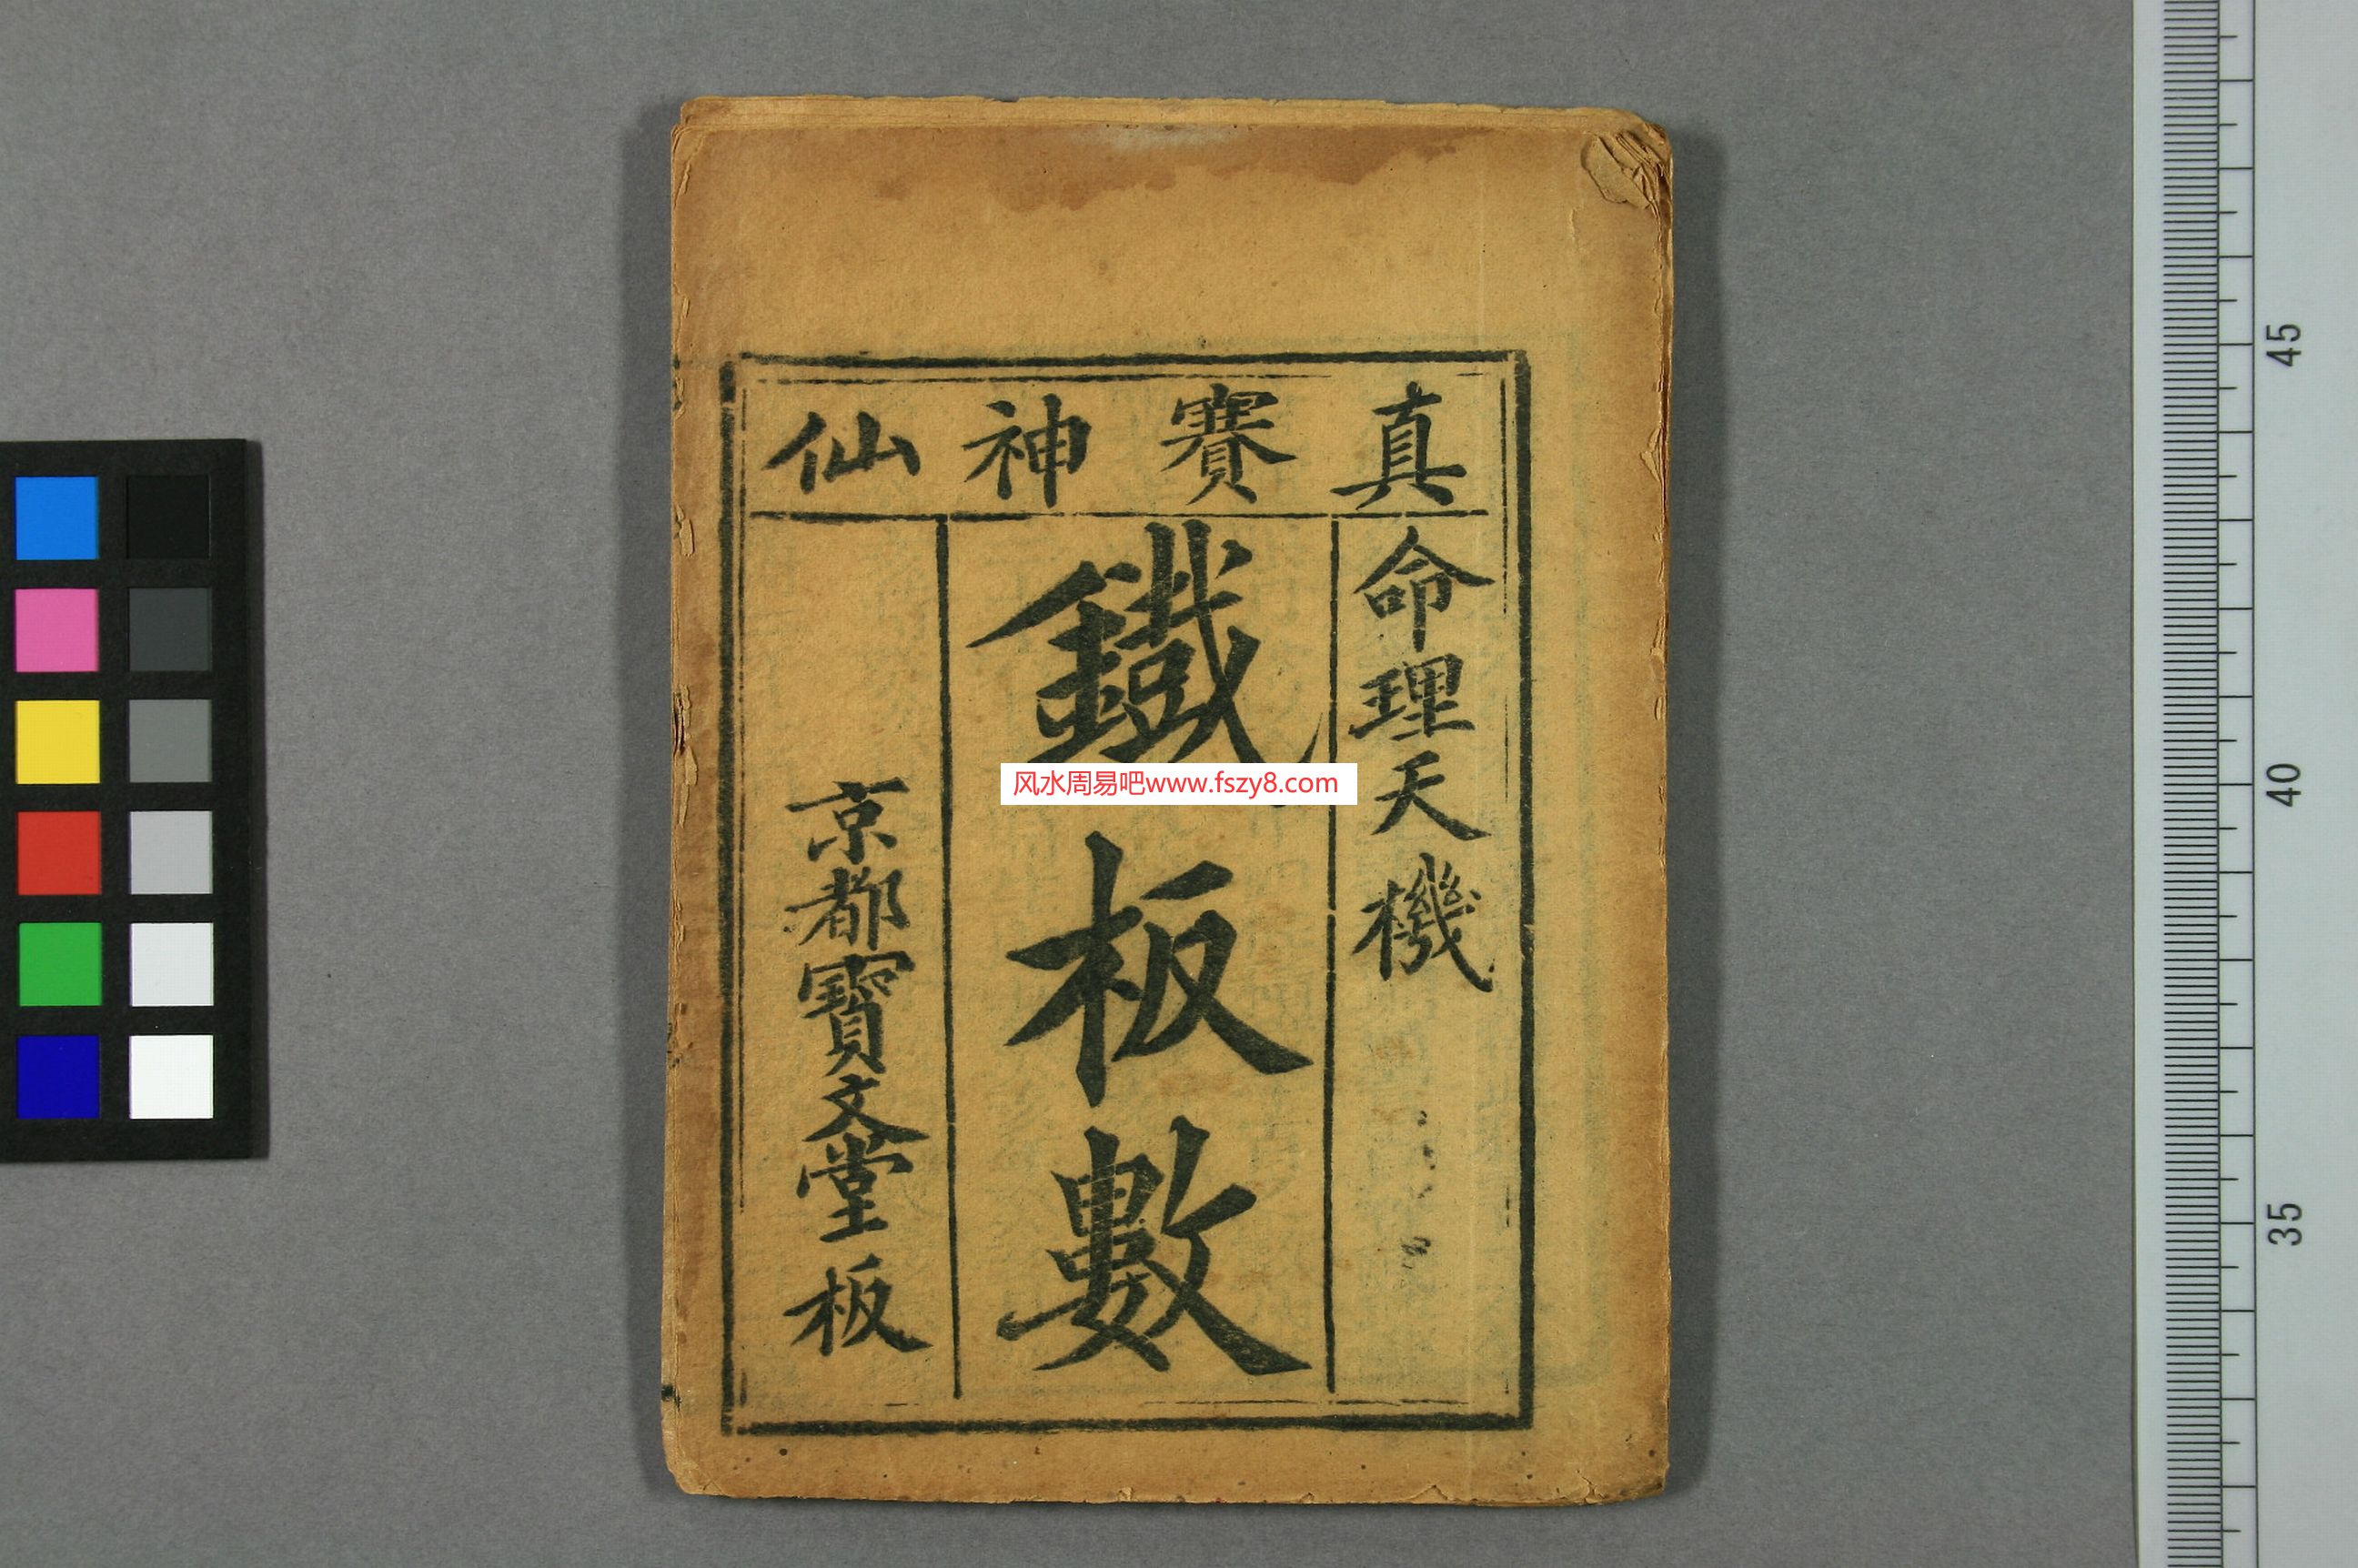 真賽神仙
命理天機
鐵板數
京都寶文堂板
风水周易吧www.fszy8.com
45
40
35